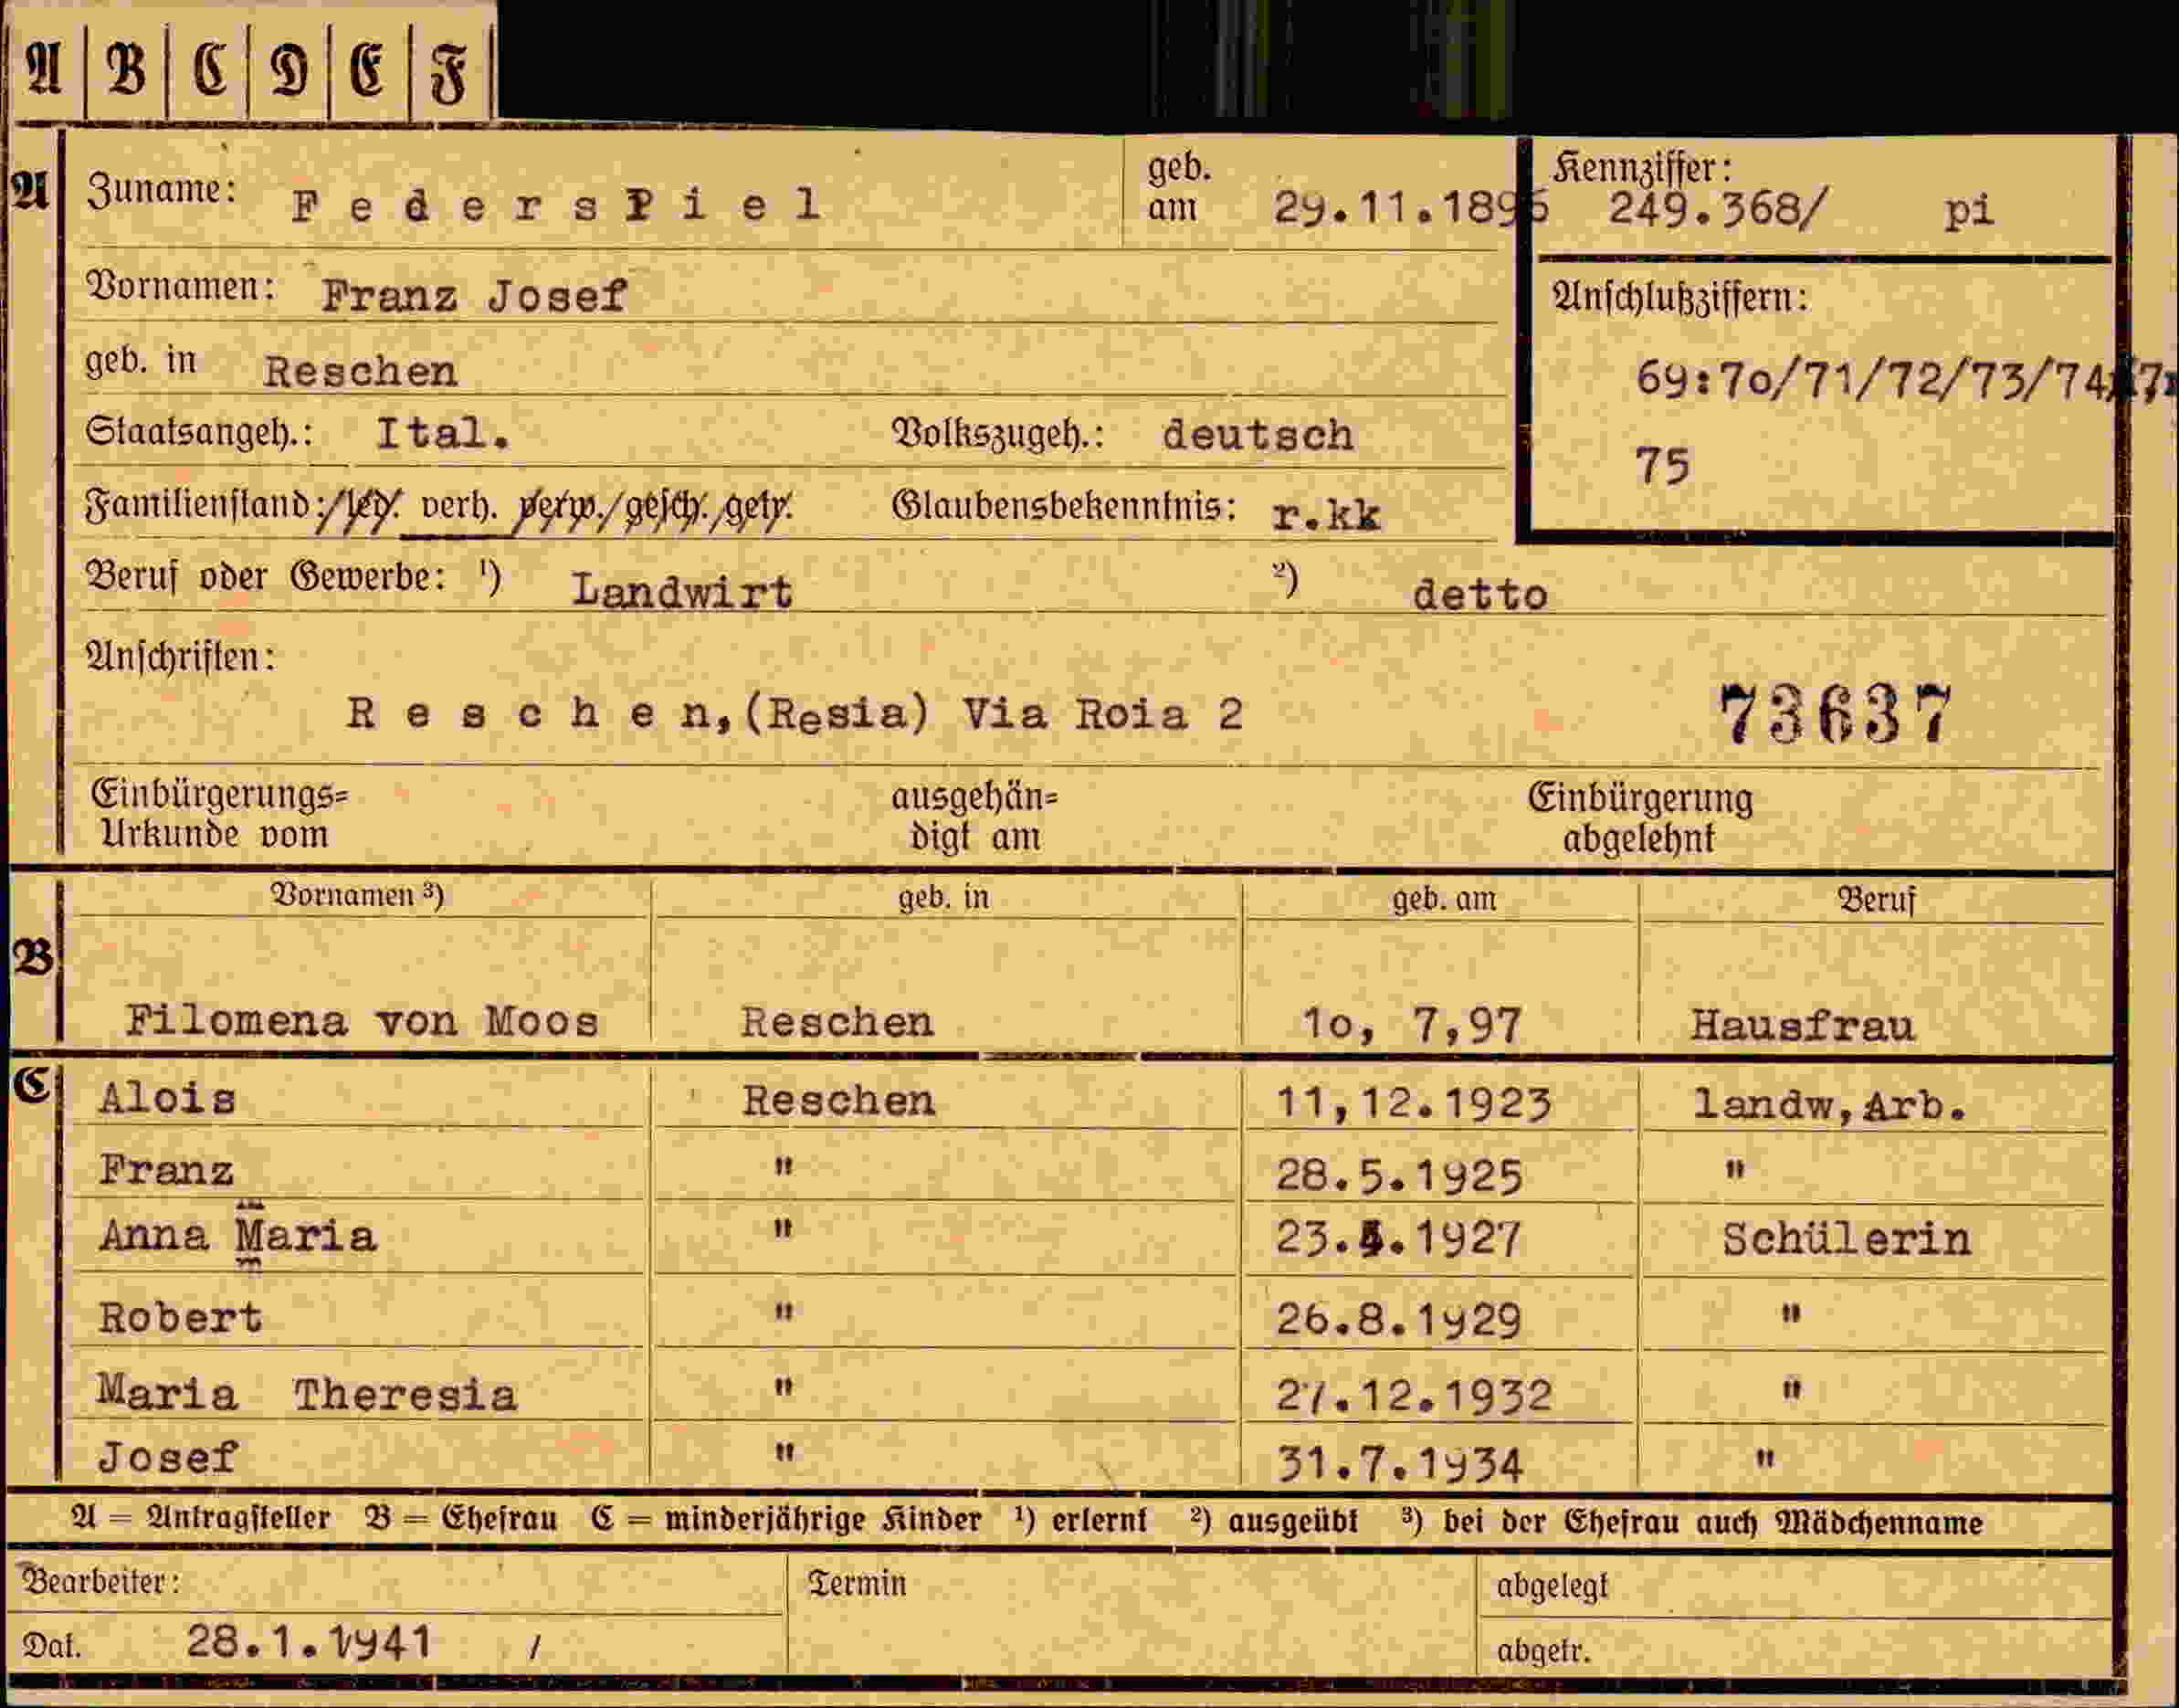 A B C D E F
A Zuname: F e d e r s P i e l geb. am 29.11.1896 Kennziffer: 249.368/ pi
Vornamen: Franz Josef Anschlußziffern:
geb. in Reschen 69:7o/71/72/73/74/
Staatsangeh.: Ital. Volkszugeh.: deutsch 75
Familienstand: led. verh. verw./gesch./getr. Glaubensbekenntnis: r.kk
Beruf oder Gewerbe: ¹) Landwirt ²) detto
Anschriften:
R e s c h e n,(Resia) Via Roia 2 73637
Einbürgerungs= ausgehän= Einbürgerung
Urkunde vom digt am abgelehnt
B Vornamen ³) geb. in geb. am Beruf
Filomena von Moos Reschen 1o, 7,97 Hausfrau
C Alois Reschen 11,12.1923 landw,Arb.
Franz " 28.5.1925 "
Anna Maria " 23. .1927 Schülerin
Robert " 26.8.1929 "
Maria Theresia " 27.12.1932 "
Josef " 31.7.1934 "
A = Antragsteller B = Ehefrau C = minderjährige Kinder ¹) erlernt ²) ausgeübt ³) bei der Ehefrau auch Mädchenname
Bearbeiter: Termin abgelegt
Dat. 28.1.1941 / abgetr.